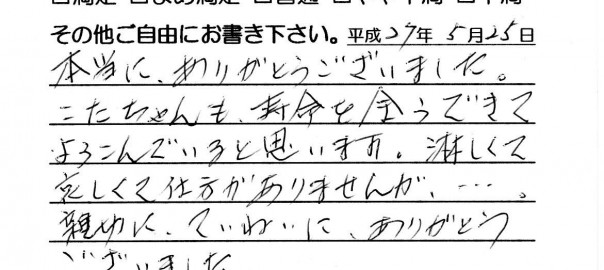 □満足 □まあ満足 □普通 □やや不満 □不満
その他ご自由にお書き下さい。平成27年5月25日
本当に、ありがとうございました。
こたちゃんも、寿命を全うできて
よろこんでいると思います。淋しくて
哀しくて仕方がありませんが、…。
親切に、ていねいに、ありがとう
ございました